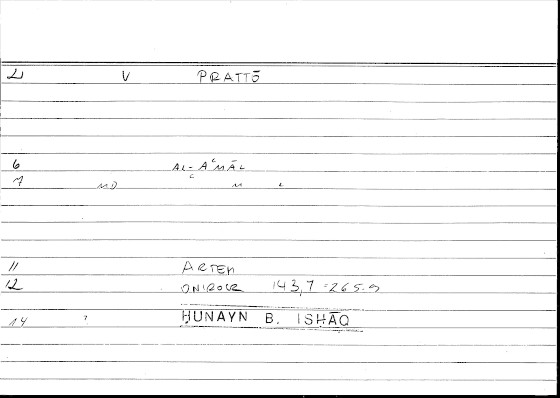 V PRATTŌ
6 AL-AʿMĀL
7 MD M
11 ARTEM
12 ONIROCR 143,7 = 265.9
14 ? ḤUNAYN B. ISḤĀQ